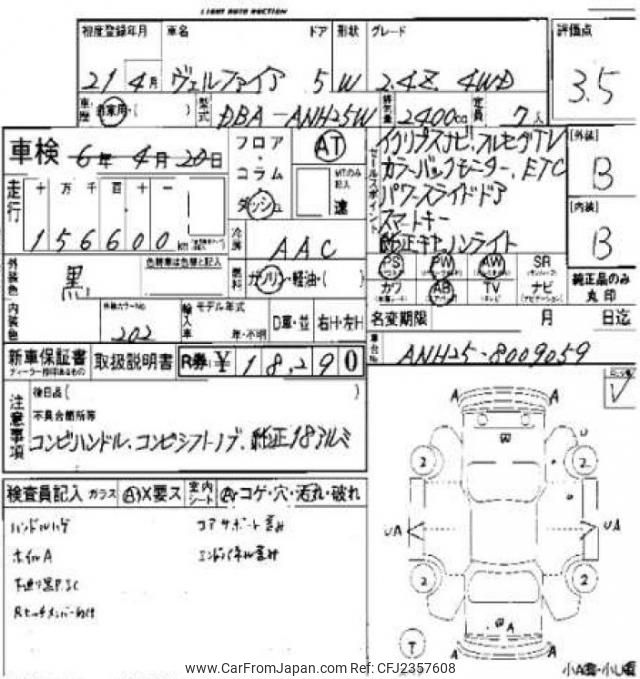 LIGHT AUTO AUCTION
初度登録年月 車名 ドア 形状 グレード 評価点
21 4月 ヴェルファイア 5 W 2.4Z 4WD 3.5
車歴 自家用・( ) 型式 DBA-ANH25W 排気量 2400cc 定員 7人
車検 6年 4月 20日
フロア・コラム ダッシュ
AT
MTのみ記入
速
セールスポイント
イクリプスナビ.フルセグTV
カラーバックモニター、ETC
パワースライドドア
スマートキー
純正キセノンライト
[外装]
B
[内装]
B
走行 十 万 千 百 十 一
156600 km
冷房 AAC
燃料 ガソリン・軽油・( )
PS PW AW SR
カワ AB TV ナビ
純正品のみ丸印
外装色 黒 色替車は色替と記入
内装色 外装カラーNo. 202
輸入車 モデル年式 年・不明 D車・並 右H・左H
名変期限 月 日迄
車台No. ANH25-8009059
新車保証書 取扱説明書 R券 ¥ 18,290
ディーラー捺印あるもの
注意事項
後日品( )
不具合箇所等
コンビハンドル、コンビシフトノブ、純正18アルミ
検査員記入 ガラス A X要ス 室内シート A・コゲ・穴・汚れ・破れ
ハンドルハゲ
コアサポート歪み
ホイルA
エンドパネル歪み
A A
W
U
2 2
UA UA
2 2
W A
T
A A
V
小A傷・小U傷
www.CarFromJapan.com Ref: CFJ2357608